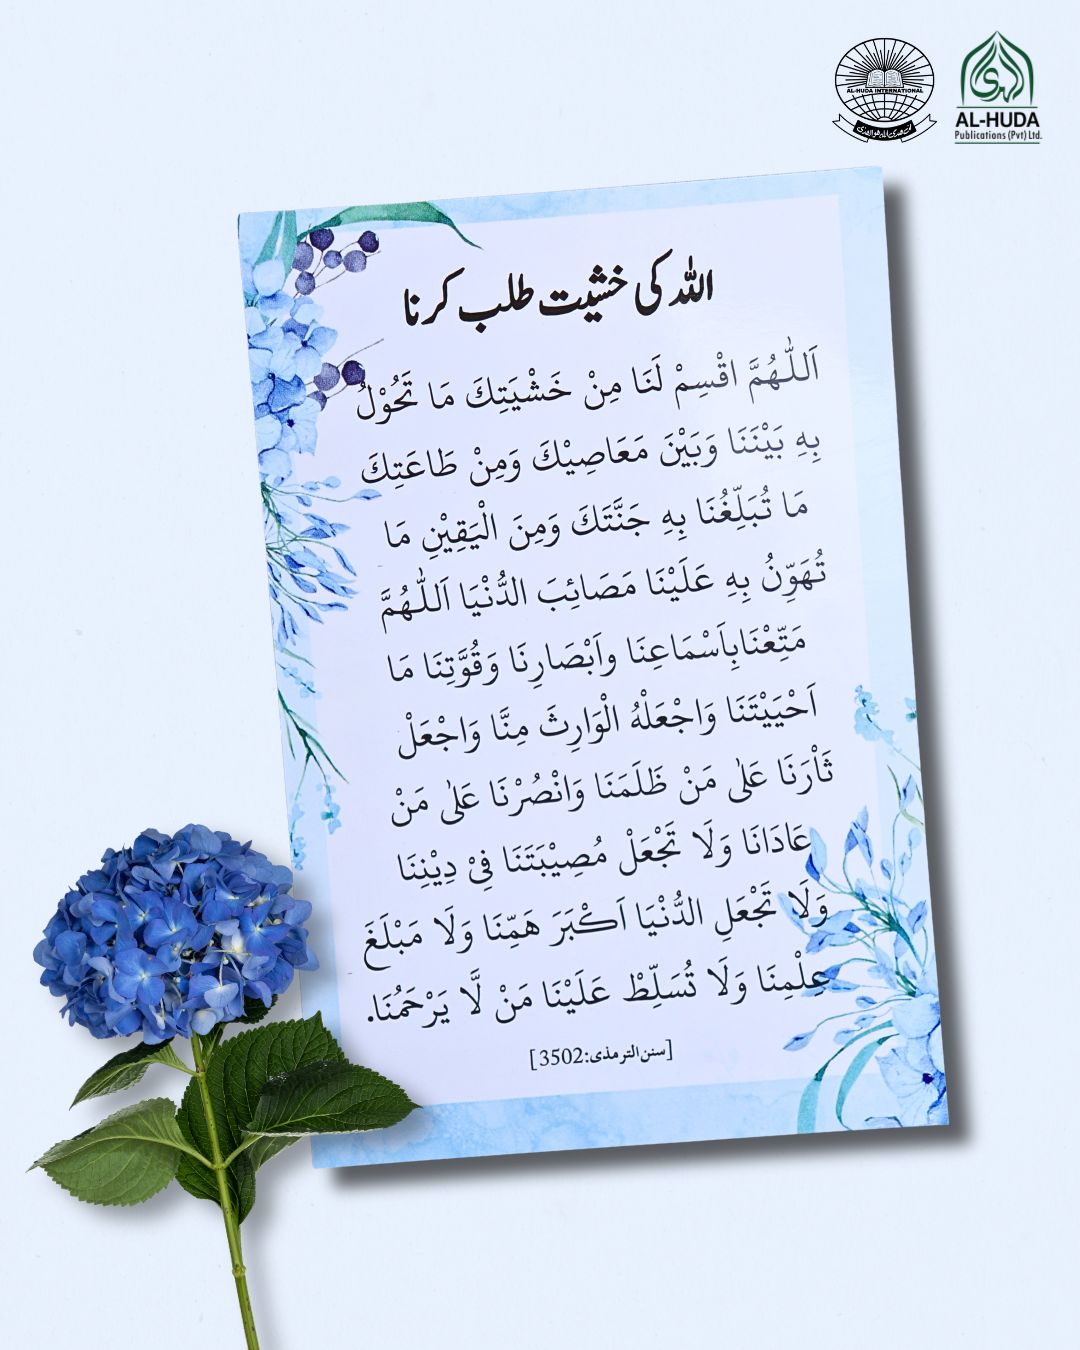 AL-HUDA INTERNATIONAL
الہدی
AL-HUDA
Publications (Pvt) Ltd.
اللہ کی خشیت طلب کرنا
اَللّٰهُمَّ اقْسِمْ لَنَا مِنْ خَشْيَتِكَ مَا تَحُوْلُ
بِهِ بَيْنَنَا وَبَيْنَ مَعَاصِيْكَ وَمِنْ طَاعَتِكَ
مَا تُبَلِّغُنَا بِهِ جَنَّتَكَ وَمِنَ الْيَقِيْنِ مَا
تُهَوِّنُ بِهِ عَلَيْنَا مَصَائِبَ الدُّنْيَا اَللّٰهُمَّ
مَتِّعْنَابِاَسْمَاعِنَا واَبْصَارِنَا وَقُوَّتِنَا مَا
اَحْيَيْتَنَا وَاجْعَلْهُ الْوَارِثَ مِنَّا وَاجْعَلْ
ثَاْرَنَا عَلٰى مَنْ ظَلَمَنَا وَانْصُرْنَا عَلٰى مَنْ
عَادَانَا وَلَا تَجْعَلْ مُصِيْبَتَنَا فِيْ دِيْنِنَا
وَلَا تَجْعَلِ الدُّنْيَا اَكْبَرَ هَمِّنَا وَلَا مَبْلَغَ
عِلْمِنَا وَلَا تُسَلِّطْ عَلَيْنَا مَنْ لَّا يَرْحَمُنَا.
[سنن الترمذی:3502]